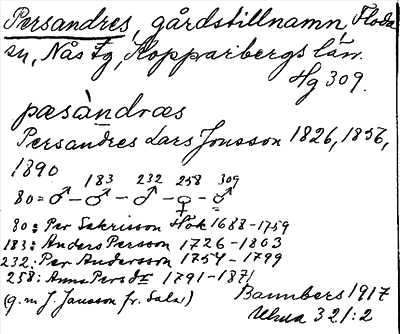 Persandres, gårdstillnamn, Floda
sn, Nås fg, Kopparbergs län.
Hg 309.
pæsàndræs
Persandres Lars Jonsson 1826, 1856,
1890
183 232 258 309
80 = ♂ – ♂ – ♂ – ♀ – ♂
80: Per Sakrisson Hök 1688-1759
183: Anders Persson 1726-1803
232: Per Andersson 1754-1799
258: Anna Persd:r 1791-1871
(g. m J. Jonsson fr. Sälar)
Bannbers 1917
Ulma 321:2